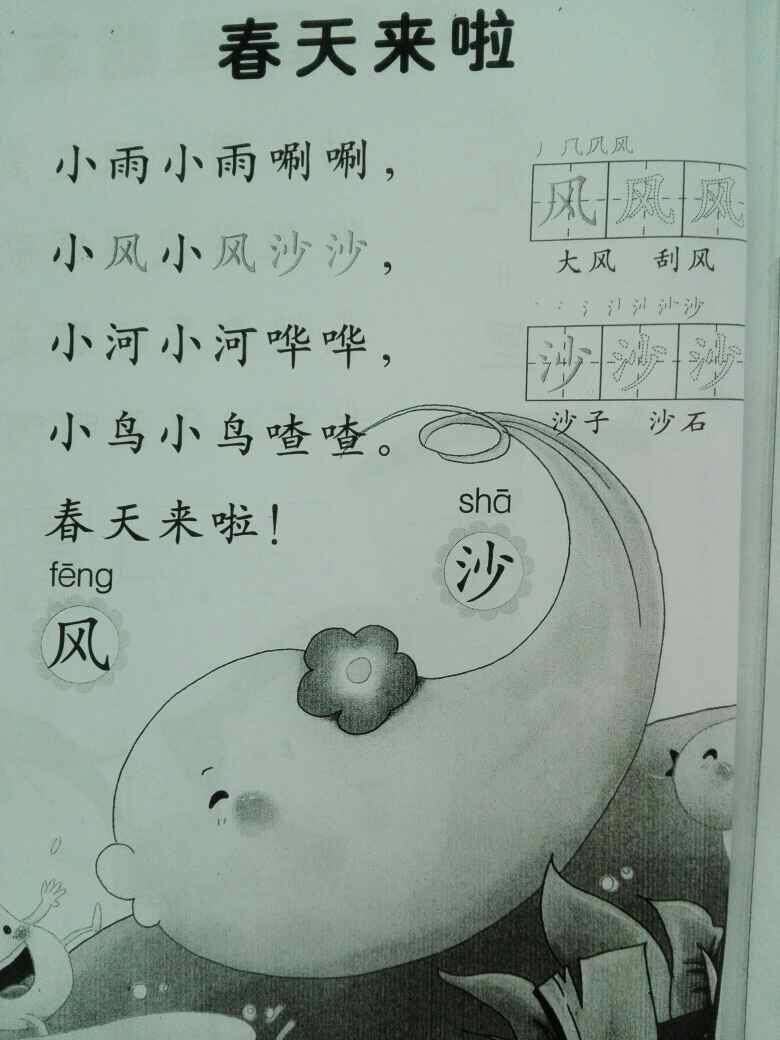 春天来啦
小雨小雨唰唰，
小风小风沙沙，
小河小河哗哗，
小鸟小鸟喳喳。
春天来啦！
丿几凡风
风风风
大风 刮风
沙沙沙
沙子 沙石
shā
沙
fēng
风